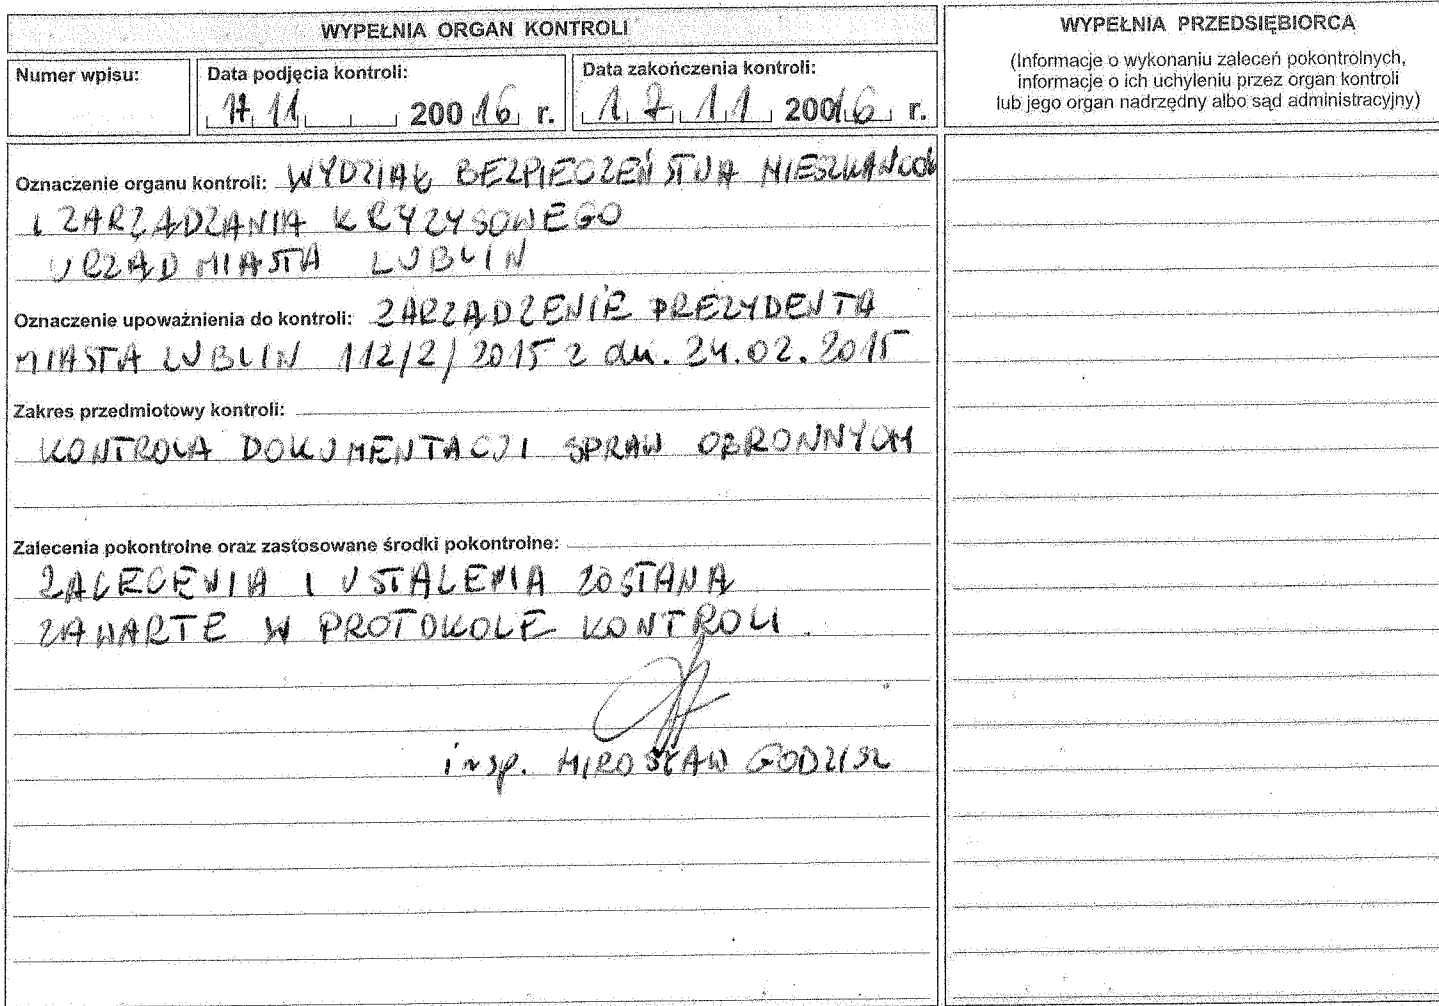 WYPEŁNIA ORGAN KONTROLI
Numer wpisu:
Data podjęcia kontroli:
17 11 20016 r.
Data zakończenia kontroli:
17 11 20016 r.
Oznaczenie organu kontroli: WYDZIAŁ BEZPIECZEŃSTWA MIESZKAŃCÓW
I ZARZĄDZANIA KRYZYSOWEGO
URZĄD MIASTA LUBLIN
Oznaczenie upoważnienia do kontroli: ZARZĄDZENIE PREZYDENTA
MIASTA LUBLIN 112/2/2015 z dn. 24.02.2015
Zakres przedmiotowy kontroli:
KONTROLA DOKUMENTACJI SPRAW OBRONNYCH
Zalecenia pokontrolne oraz zastosowane środki pokontrolne:
ZALECENIA I USTALENIA ZOSTANĄ
ZAWARTE W PROTOKOLE KONTROLI.
insp. MIROSŁAW GODZISZ
WYPEŁNIA PRZEDSIĘBIORCA
(Informacje o wykonaniu zaleceń pokontrolnych,
informacje o ich uchyleniu przez organ kontroli
lub jego organ nadrzędny albo sąd administracyjny)